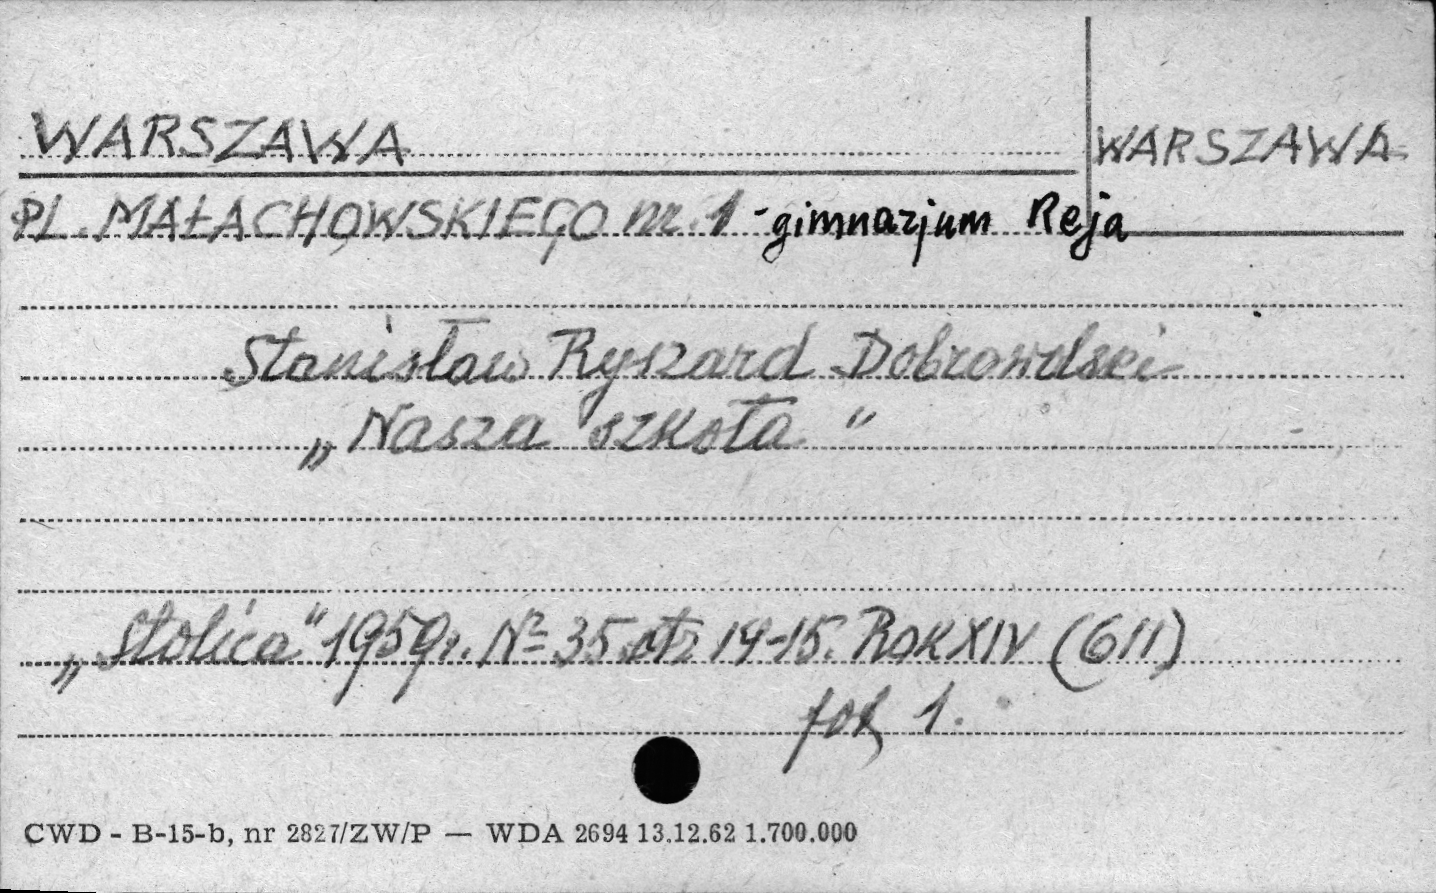 WARSZAWA
WARSZAWA
PL. MAŁACHOWSKIEGO nr. 1 - gimnazjum Reja
Stanisław Ryszard Dobrowolski
„Nasza szkoła"
„Stolica" 1959r. Nº 35 str 14-15. ROK XIV (611)
fot 1.
CWD - B-15-b, nr 2827/ZW/P — WDA 2694 13.12.62 1.700.000